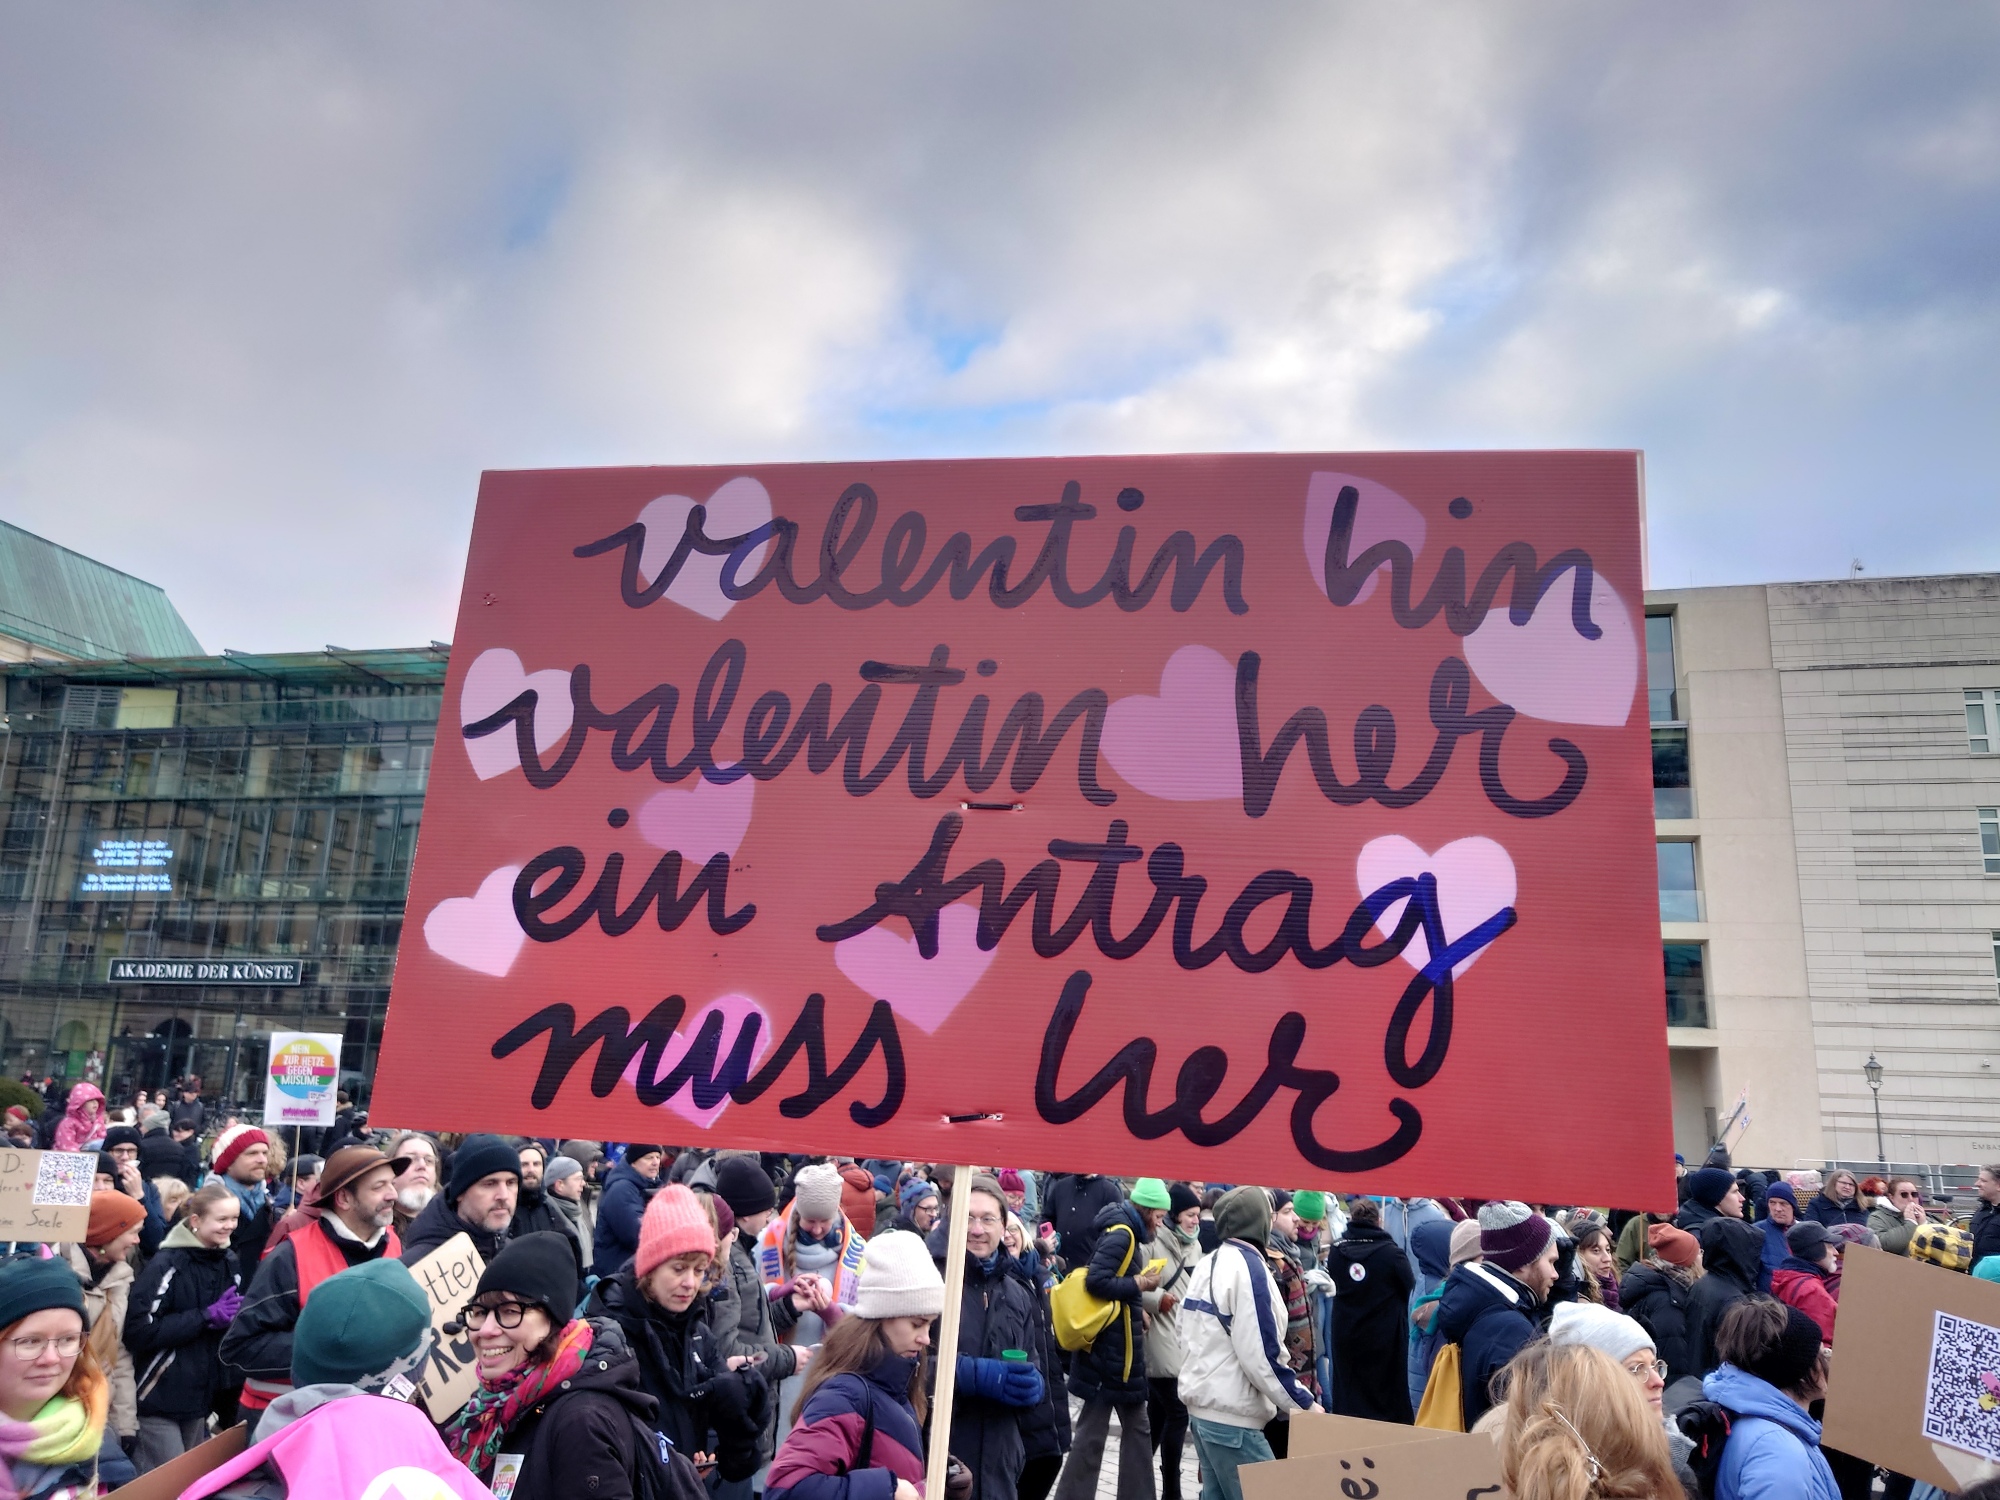 valentin hin
valentin her
ein Antrag
muss her
AKADEMIE DER KÜNSTE
NEIN
ZUR HETZE
GEGEN
MUSLIME
D:
Seele
otter